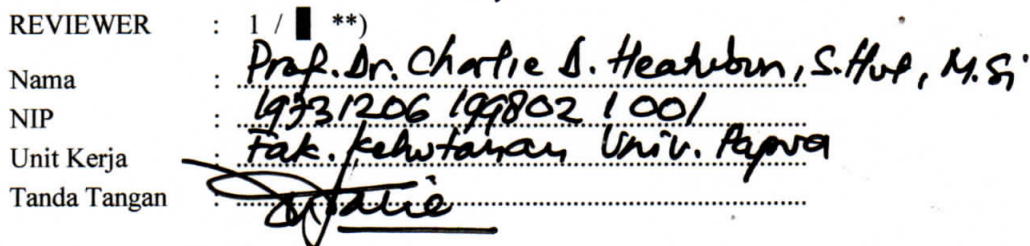 REVIEWER : 1 / **)
Nama : Prof. Dr. Charlie D. Heatubun, S.Hut, M.Si
NIP : 19731206 199802 1 001
Unit Kerja : Fak. Kehutanan Univ. Papua
Tanda Tangan :